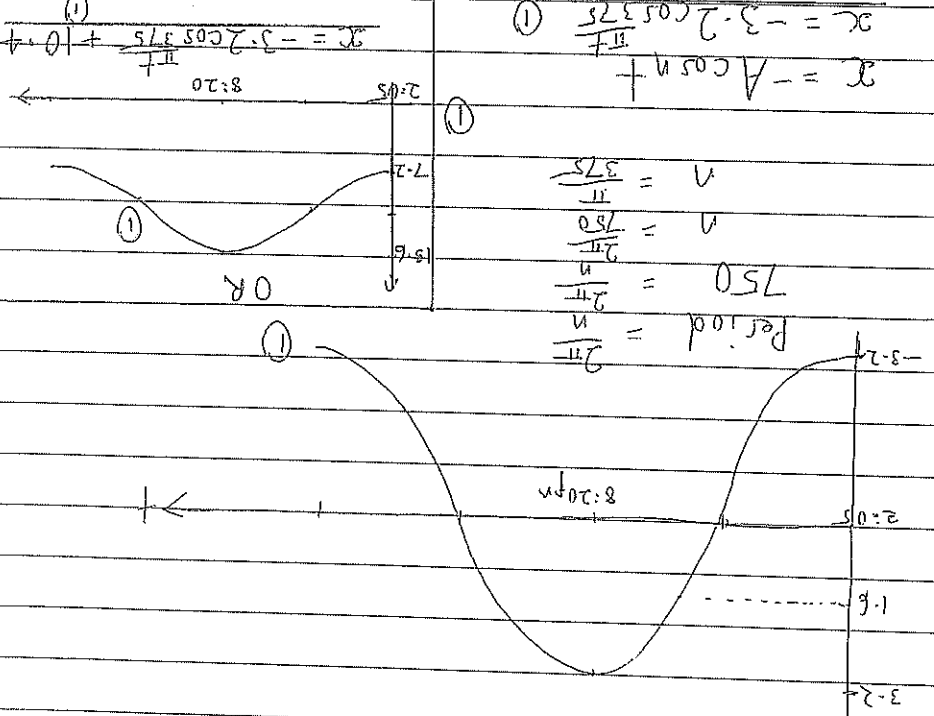 3·2
1·6
2:05
8:20pm
-3·2
①
Period = 2π/n
750 = 2π/n
n = 2π/750
n = π/375
①
x = -A cos n t
x = -3·2 cos πt/375 ①
OR
13·6
①
7·2
2:05
8:20
x = -3·2 cos πt/375 + 10·4
①